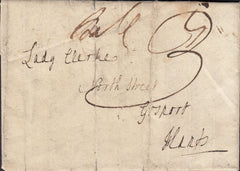 Lady Clarke
North Street
Gosport
Hants